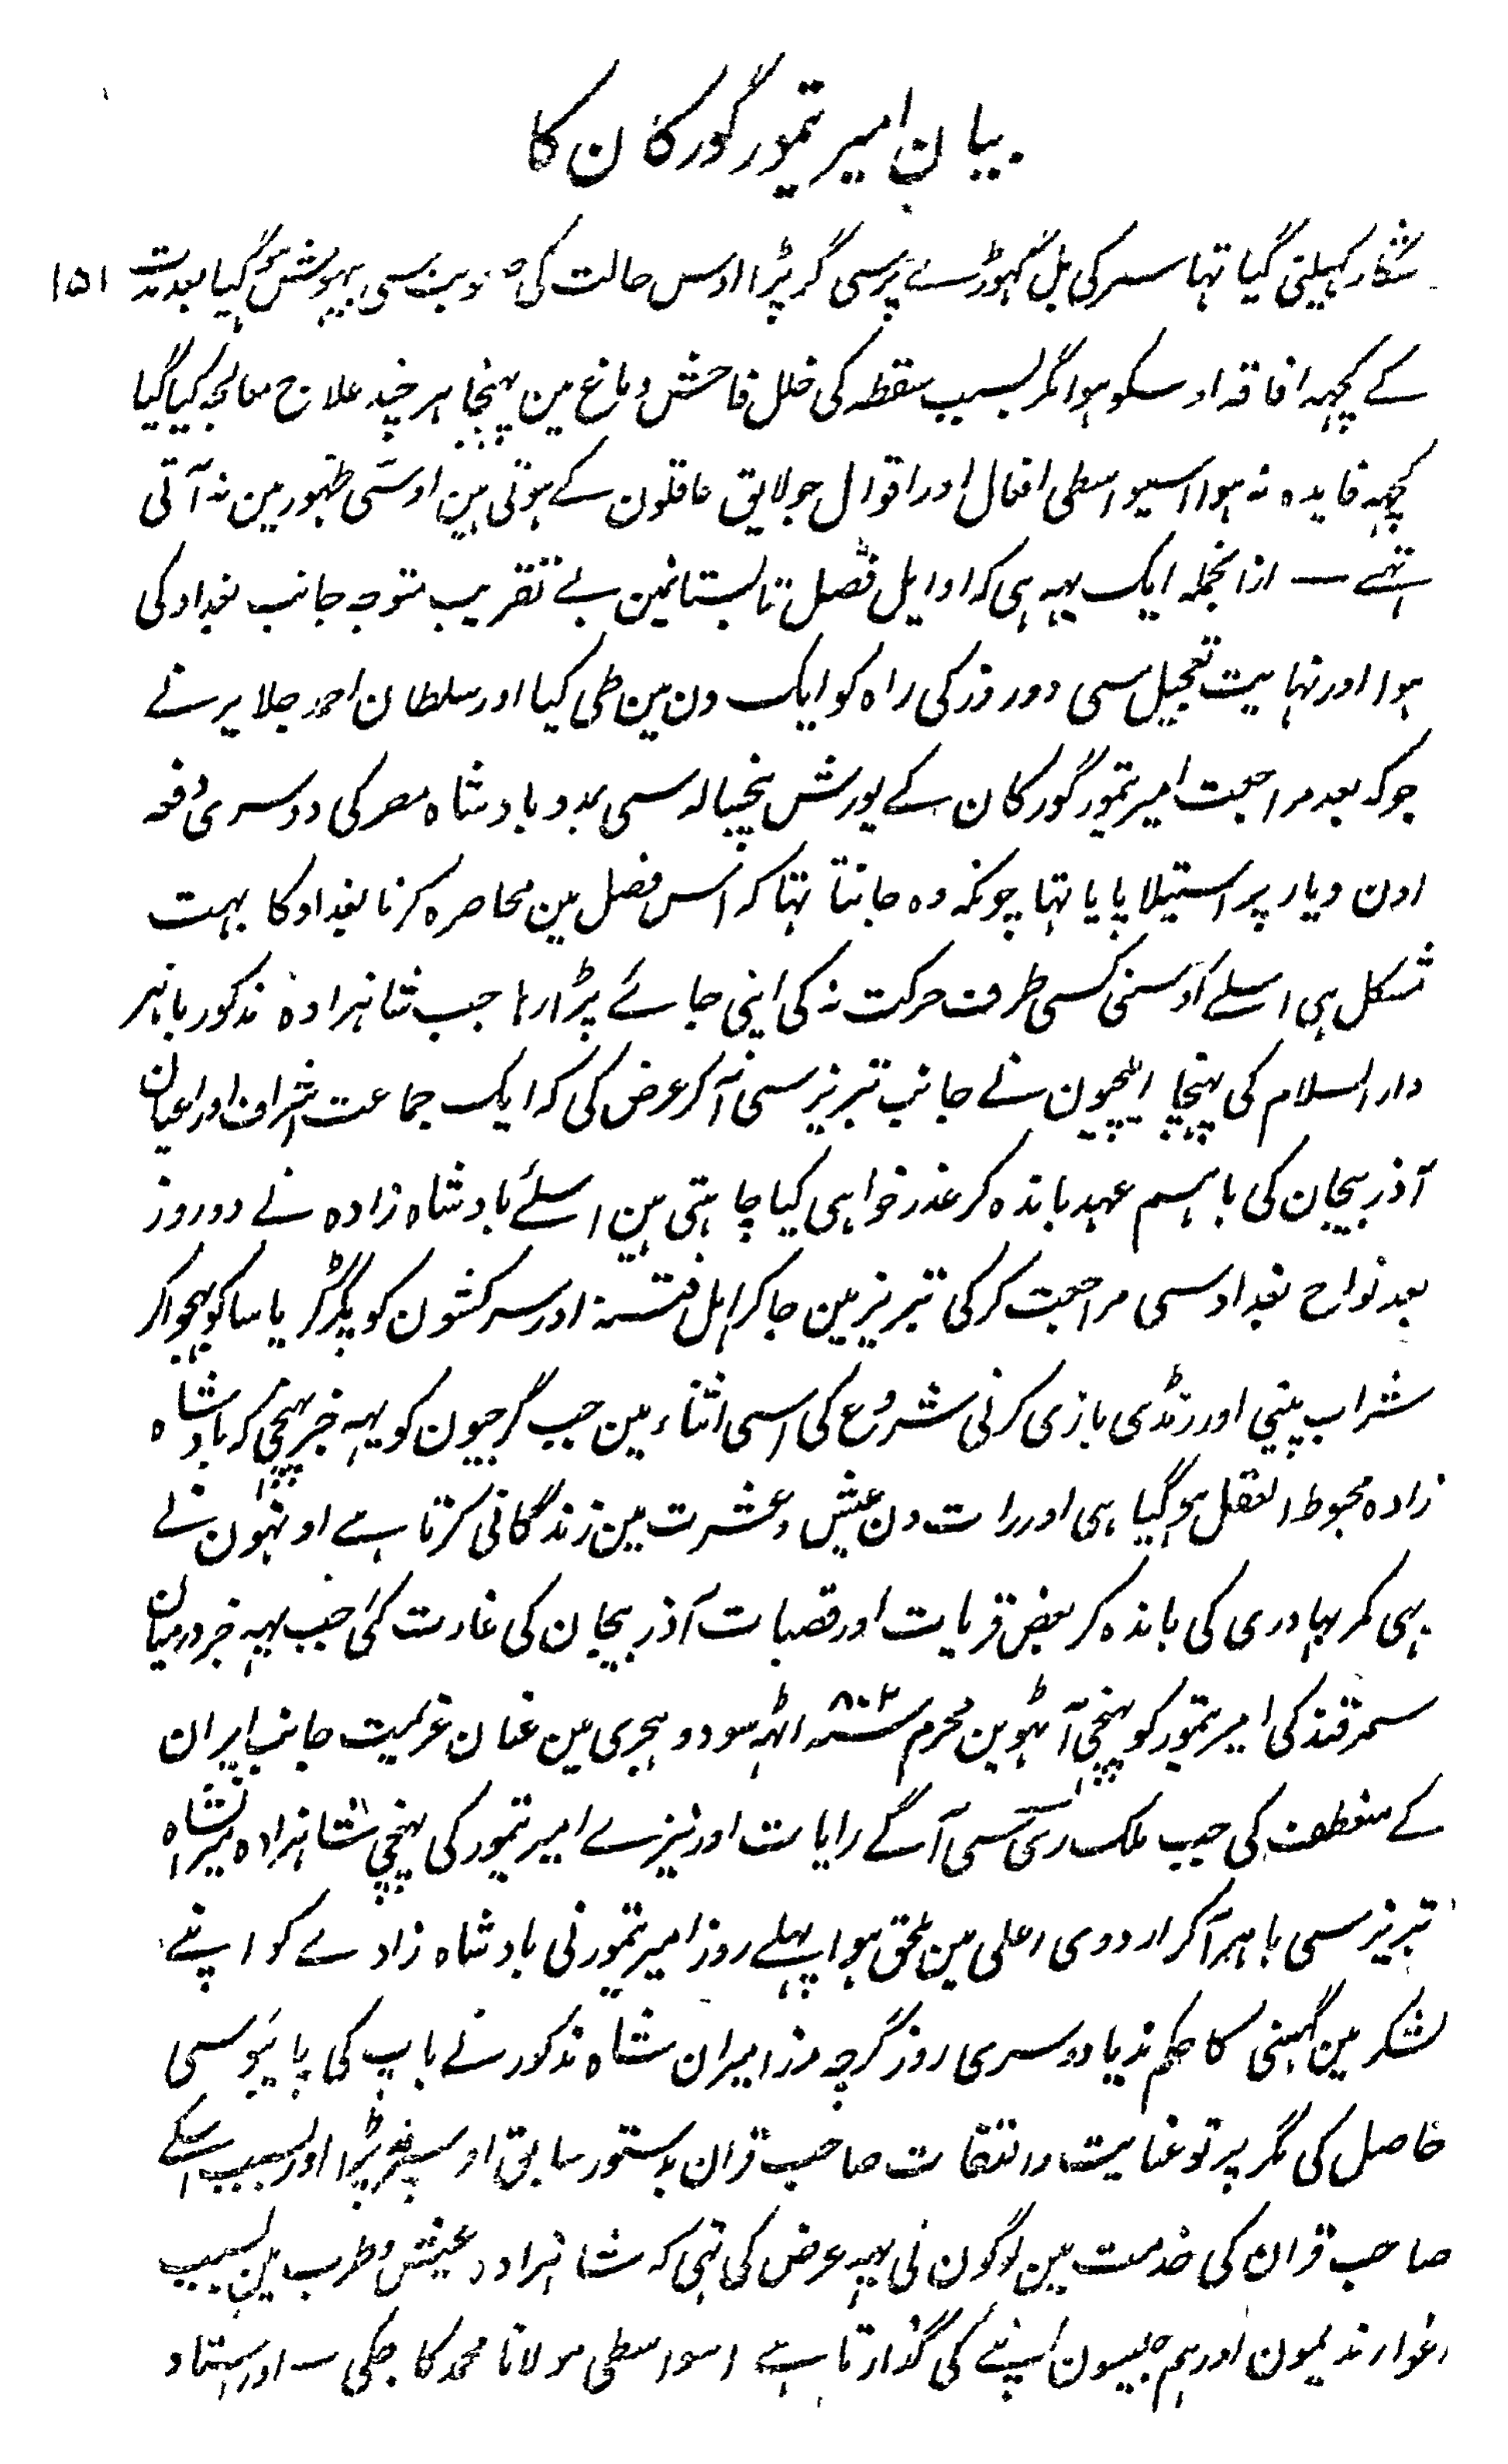 بیان امیر تیمور گورکان کا
شکار کہیلنی گیا تہا سر کی بل گہوڑے پر سی گر پڑا اوس حالت کی صعوبت سی بیہوش ہو گیا بعد مدت ۱۵۱
کے کچہہ افاقہ اوسکو ہوا مگر بسبب سقطہ کی خلل فاحش دماغ مین پہنچا ہر چند علاج معالجہ کیا گیا
کچہہ فایدہ نہ ہوا اسیواسطی افعال اور اقوال جو لایق عاقلون کے ہوتی ہین اوسّی ظہور مین نہ آتی
تہے — ازانجملہ ایک یہہ ہی کہ اوایل فصل تابستانمین بے تقریب متوجہ جانب بغداد کی
ہوا اور نہایت تعجیل سی دو روز کی راہ کو ایک دن مین طی کیا اور سلطان احمد جلایر نے
جو کہ بعد مراجعت امیر تیمور گورکان کے یورش پنچسالہ سی بمدد بادشاہ مصر کی دوسری دفعہ
اون دیار پر استیلا پایا تہا چونکہ وہ جانتا تہا کہ اس فصل مین محاصرہ کرنا بغداد کا بہت
مشکل ہی اسلے اوسنی کسی طرف حرکت نہ کی اپنی جائے پڑا رہا جب شاہزادہ مذکور باہر
دار السلام کی پہنچا ایلچیون نے جانب تبریز سی آ کر عرض کی کہ ایک جماعت اشراف اور اعیان
آذربیجان کی باہم عہد باندہ کر عذر خواہی کیا چاہتی ہین اسلئے بادشاہ زادہ نے دو روز
بعد نواح بغداد سی مراجعت کر کی تبریز مین جا کر اہل فتنہ اور سرکشون کو پکڑ کر یاسا کو بہجوا کر
شراب پینی اور رنڈی بازی کرنی شروع کی اسی اثناء مین جب گرجیون کو یہہ خبر پہنچی کہ بادشاہ
زادہ مخبوط العقل ہو گیا ہی اور رات دن عیش و عشرت مین زندگانی کرتا ہے اونہون نے
بہی کمر بہادری کی باندہ کر بعض قریات اور قصبات آذربیجان کی غارت کئی جب یہہ خبر درمیان
سمرقند کی امیر تیمور کو پہنچی آٹہوین محرم ۸۰۲ سنہ اٹہہ سو دو ہجری مین عنان عزیمت جانب ایران
کے منعطف کی جب ملک ری سی آگے رایات اور نیزے امیر تیمور کی پہنچی شاہزادہ میرانشاہ
تبریز سی باہر آ کر اردوی اعلی مین ملحق ہوا پہلے روز امیر تیمور نی بادشاہ زادے کو اپنے
لشکر مین گہسنی کا حکم ندیا دوسری روز گرچہ مرزا میران شاہ مذکور نے باپ کی پابوسی
حاصل کی مگر پرتو عنایت و التفات صاحب قران بدستور سابق اوسپر نہ پڑا اور بسبب اسکے
صاحب قران کی خدمت مین لوگون نی یہہ عرض کی تہی کہ شاہزادہ عیش و طرب مین بسبب
اغوار ندیمون اور ہم جلیسون اپنے کی گذارتا ہے اسواسطی مولانا محمد کاجکی — اور استاد